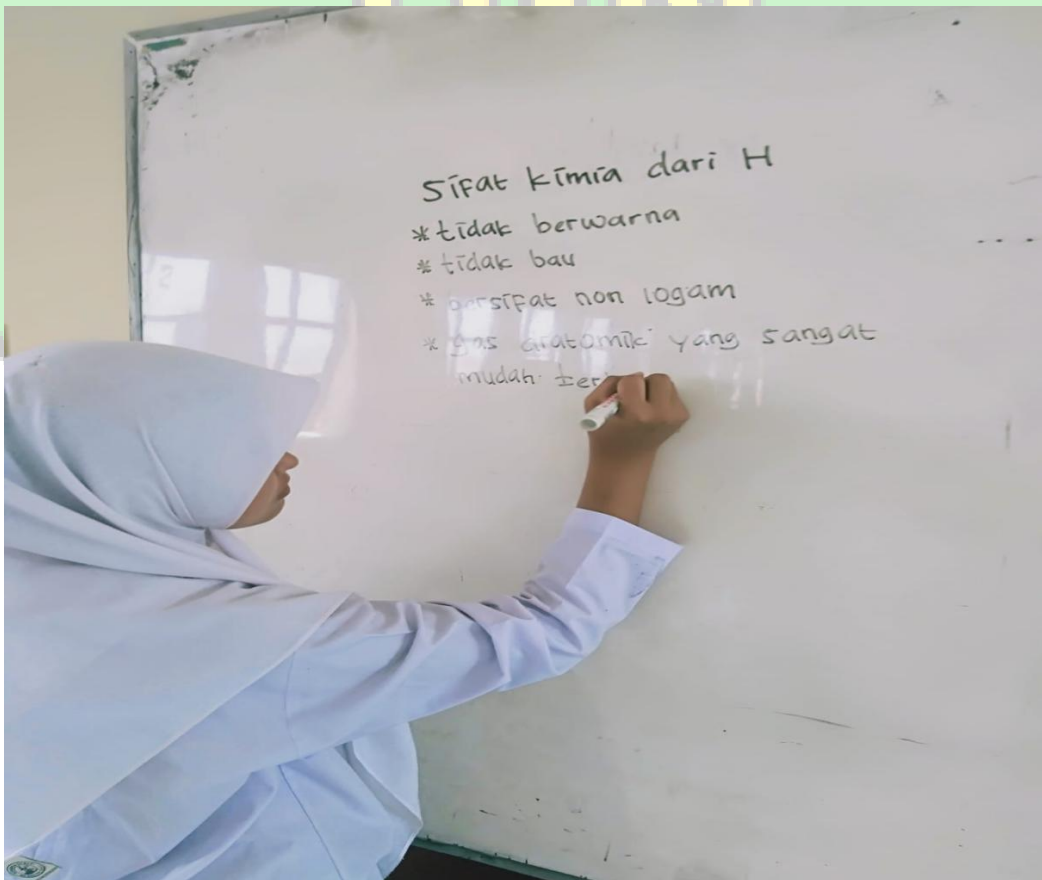 Sifat kimia dari H
* tidak berwarna
* tidak bau
* bersifat non logam
* gas diatomik yang sangat
mudah ter